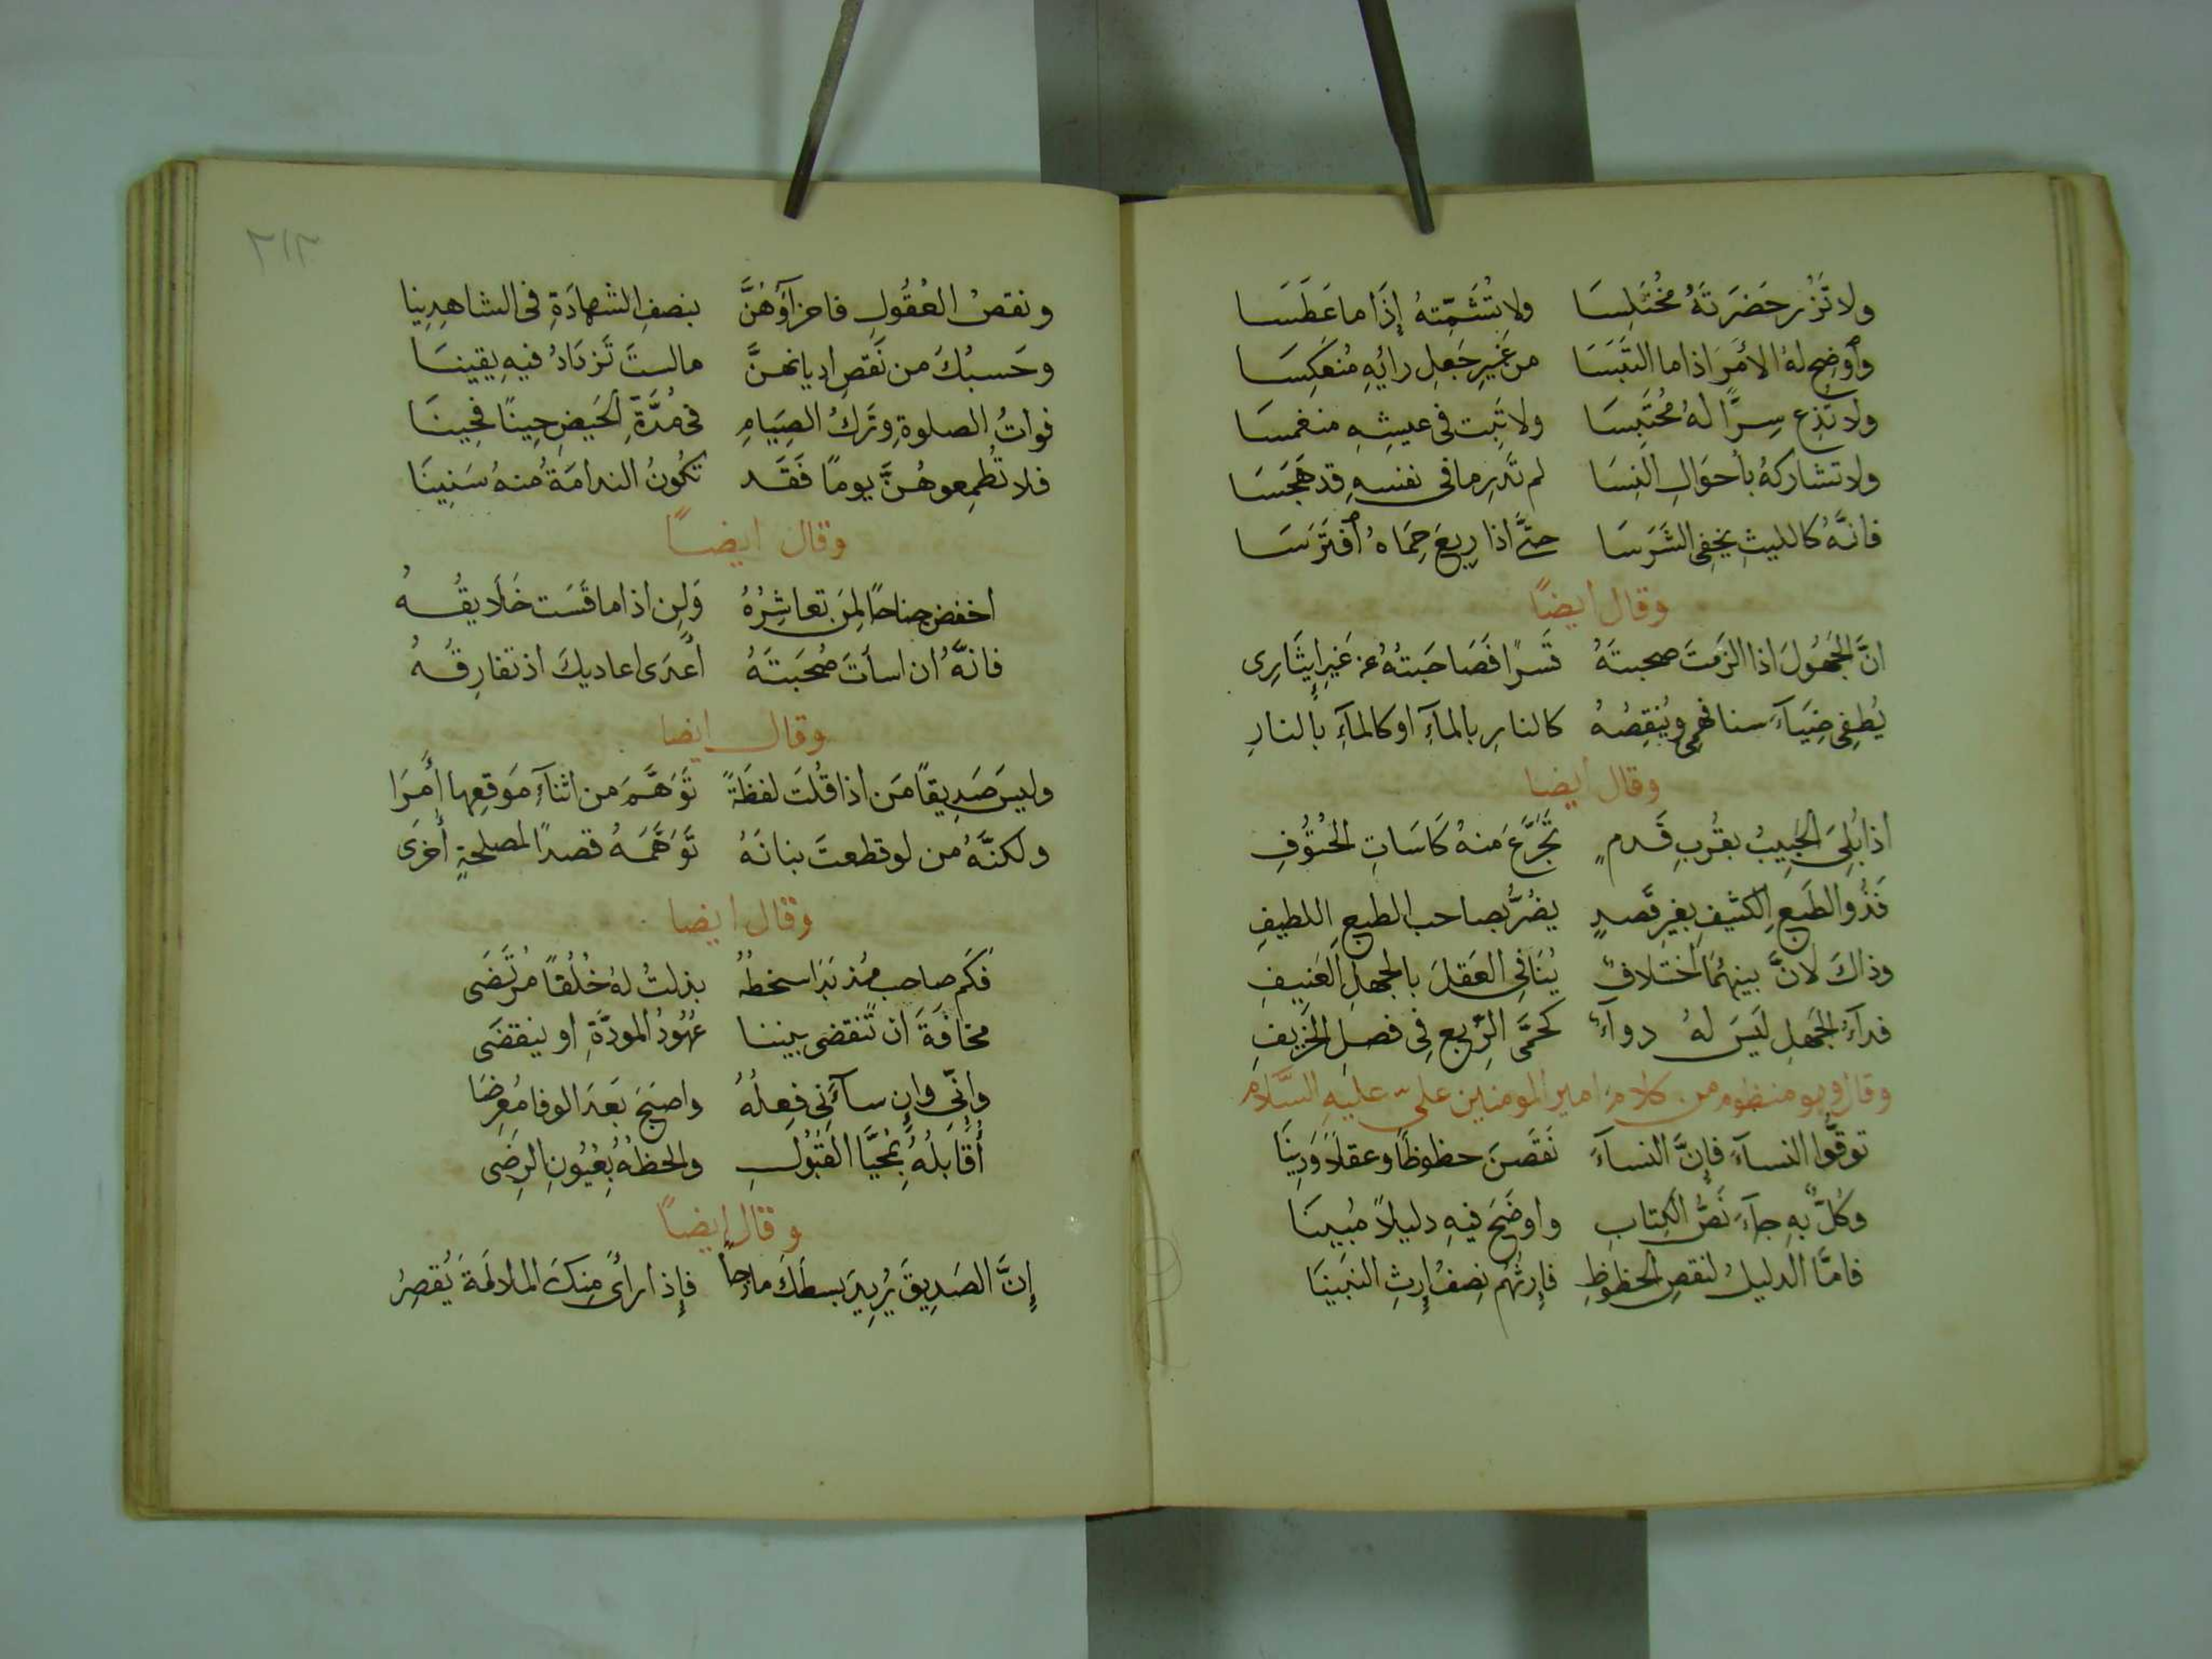 ولا تَزُر حَضَرَتَهُ مُختَلِسَا ولا تُشَمِّتهُ إِذَا ما عَطَسَا
وأَوضِح لهُ الأَمرَ اذا ما التَبَسَا من غَيرِ جَعلِ رايِهِ مُنعَكِسَا
ولا تذِع سِرًّا لهُ مُحتَبِسَا ولا تَبِت فى عيشِهِ منغمسَا
ولا تشاركهُ بأحوَالِ النِسَا لم تَدرِ ما فى نفسهِ قد هَجَسَا
فانَّهُ كالليثِ يخفِى الشَرَسَا حتَّى اذا رِيعَ حِمَاهُ افتَرَسَا
وقال ايضًا
انَّ الجَهُولَ اذا الزَمتَ صحبتَهُ قَسرًا فَصَاحَبتهُ عن غَيرِ إِيثَارِى
يُطفِى ضِيَآءَ سنا فهمِى ويُنقِصُهُ كالنارِ بالمآءِ او كالمآءِ بالنارِ
وقال ايضا
اذا بُلِىَ اللَبِيبُ بقُربِ فَدمٍ تجَرَّعَ منهُ كَاسَاتِ الحُتوُفِ
فَذُو الطَبعِ الكَثيفِ بغيرِ قَصدٍ يضُرُّ بصاحب الطبعِ اللطيفِ
وذاكَ لانَّ بينهُما اختلافٌ يُنَافِى العَقلَ بالجهلِ العَنِيفِ
فدآءُ الجَهلِ ليَسَ لهُ دوآءٌ كحمَّى الرَّبيعِ فِى فصلِ الخَرِيفِ
وقال وهو منظوم من كلام امير المومنين علىّ عليهِ السَّلام
توقَّوا النسآءَ فإِنَّ النسآءَ نَقَصنَ حظوظًا وعقلاً وَدِينَا
وكلٌّ بهِ جآءَ نَصُّ الكِتابِ واوضَحَ فيهِ دليلاً مُبِينَا
فامَّا الدليلُ لنقصِ الحظوظِ فإرثُهُم نِصفُ إِرثِ البَنِينَا
٢١٣
ونقصُ العُقُولِ فاجزآؤهُنَّ بنصفِ الشهادَةِ فى الشاهِدِينا
وحَسبُكَ من نَقصِ اديانهنَّ مالستَ تَزدَادُ فيهِ يقينَا
فواتُ الصلوةِ وتَركُ الصِيَامِ فى مُدَّةِ الحَيضِ حِينًا فحِينَا
فلا تُطمِعوهُنَّ يومًا فَقَد تكُونُ الندامَةُ منهُ سَنِينَا
وقال ايضًا
اخفض جناحًا لمِن تعاشِرُهُ وَلِن اذا ما قَسَت خَلَايقُهُ
فانَّهُ ان اسأتَ صُحبَتَهُ أَعدَى اعاديكَ اذ تفارِقُهُ
وقال ايضا
وليسَ صَدِيقًا مَن اذا قُلتَ لفظَةً تَوَهَّمَ من اثنآءِ مَوقِعِها أَمرَا
ولكنَّهُ من لو قطعتَ بنانَهُ تَوَهَّمَهُ قصدًا لمصلحةٍ أُخرَى
وقال ايضا
فكَم صاحبٍ مُذ بَدَا سخطُهُ بذلتُ لهُ خُلُقًا مُرتَضَى
مخافَةَ ان تنقضى بيننا عُهُودُ المودَّةِ او ينقضَى
وانِّى وإِن سآءَنى فِعلُهُ واصبَحَ بَعدَ الوفا مُعرِضَا
أُقَابلُهُ بمُحَيَّا القَبُولِ والحظهُ بعُيُونِ الرِضَى
وقال ايضًا
إِنَّ الصَدِيقَ يُرِيدَ بسطَكَ مازحاً فإِذا رأَى مِنكَ الملالَةَ يُقصِرُ